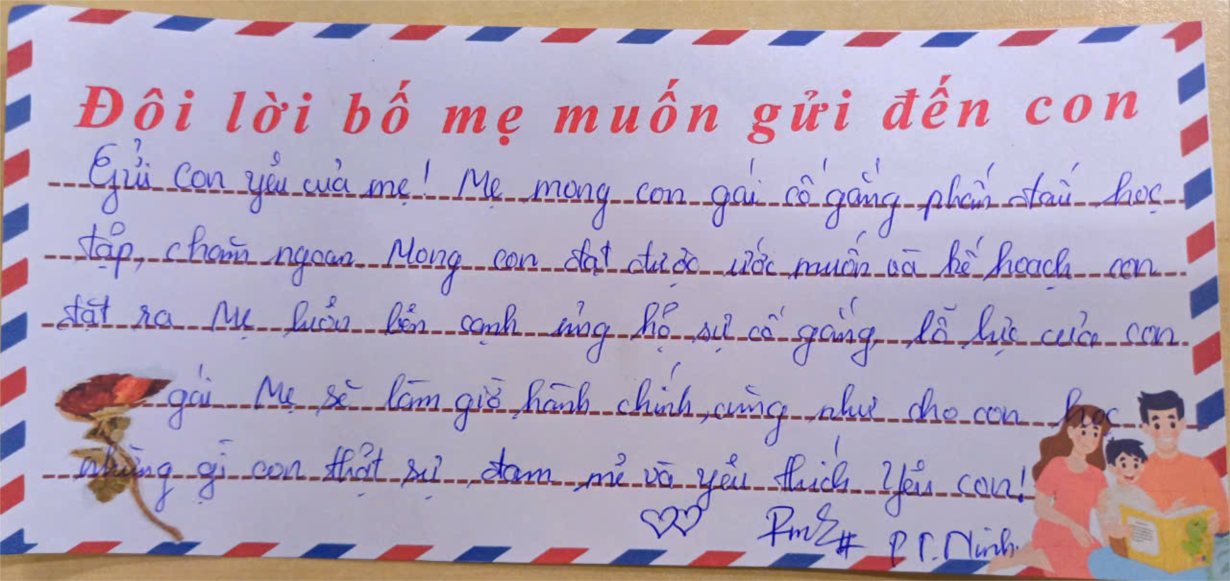 Đôi lời bố mẹ muốn gửi đến con
Gửi con yêu của mẹ! Mẹ mong con gái cố gắng phấn đấu học
tập, chăm ngoan. Mong con đạt được ước muốn và kế hoạch con
đặt ra Mẹ luôn bên cạnh ủng hộ sự cố gắng, lỗ lực của con
gái Mẹ sẽ làm giờ hành chính, cũng như cho con học
những gì con thật sự đam mê và yêu thích Yêu con!
P.T.Ninh